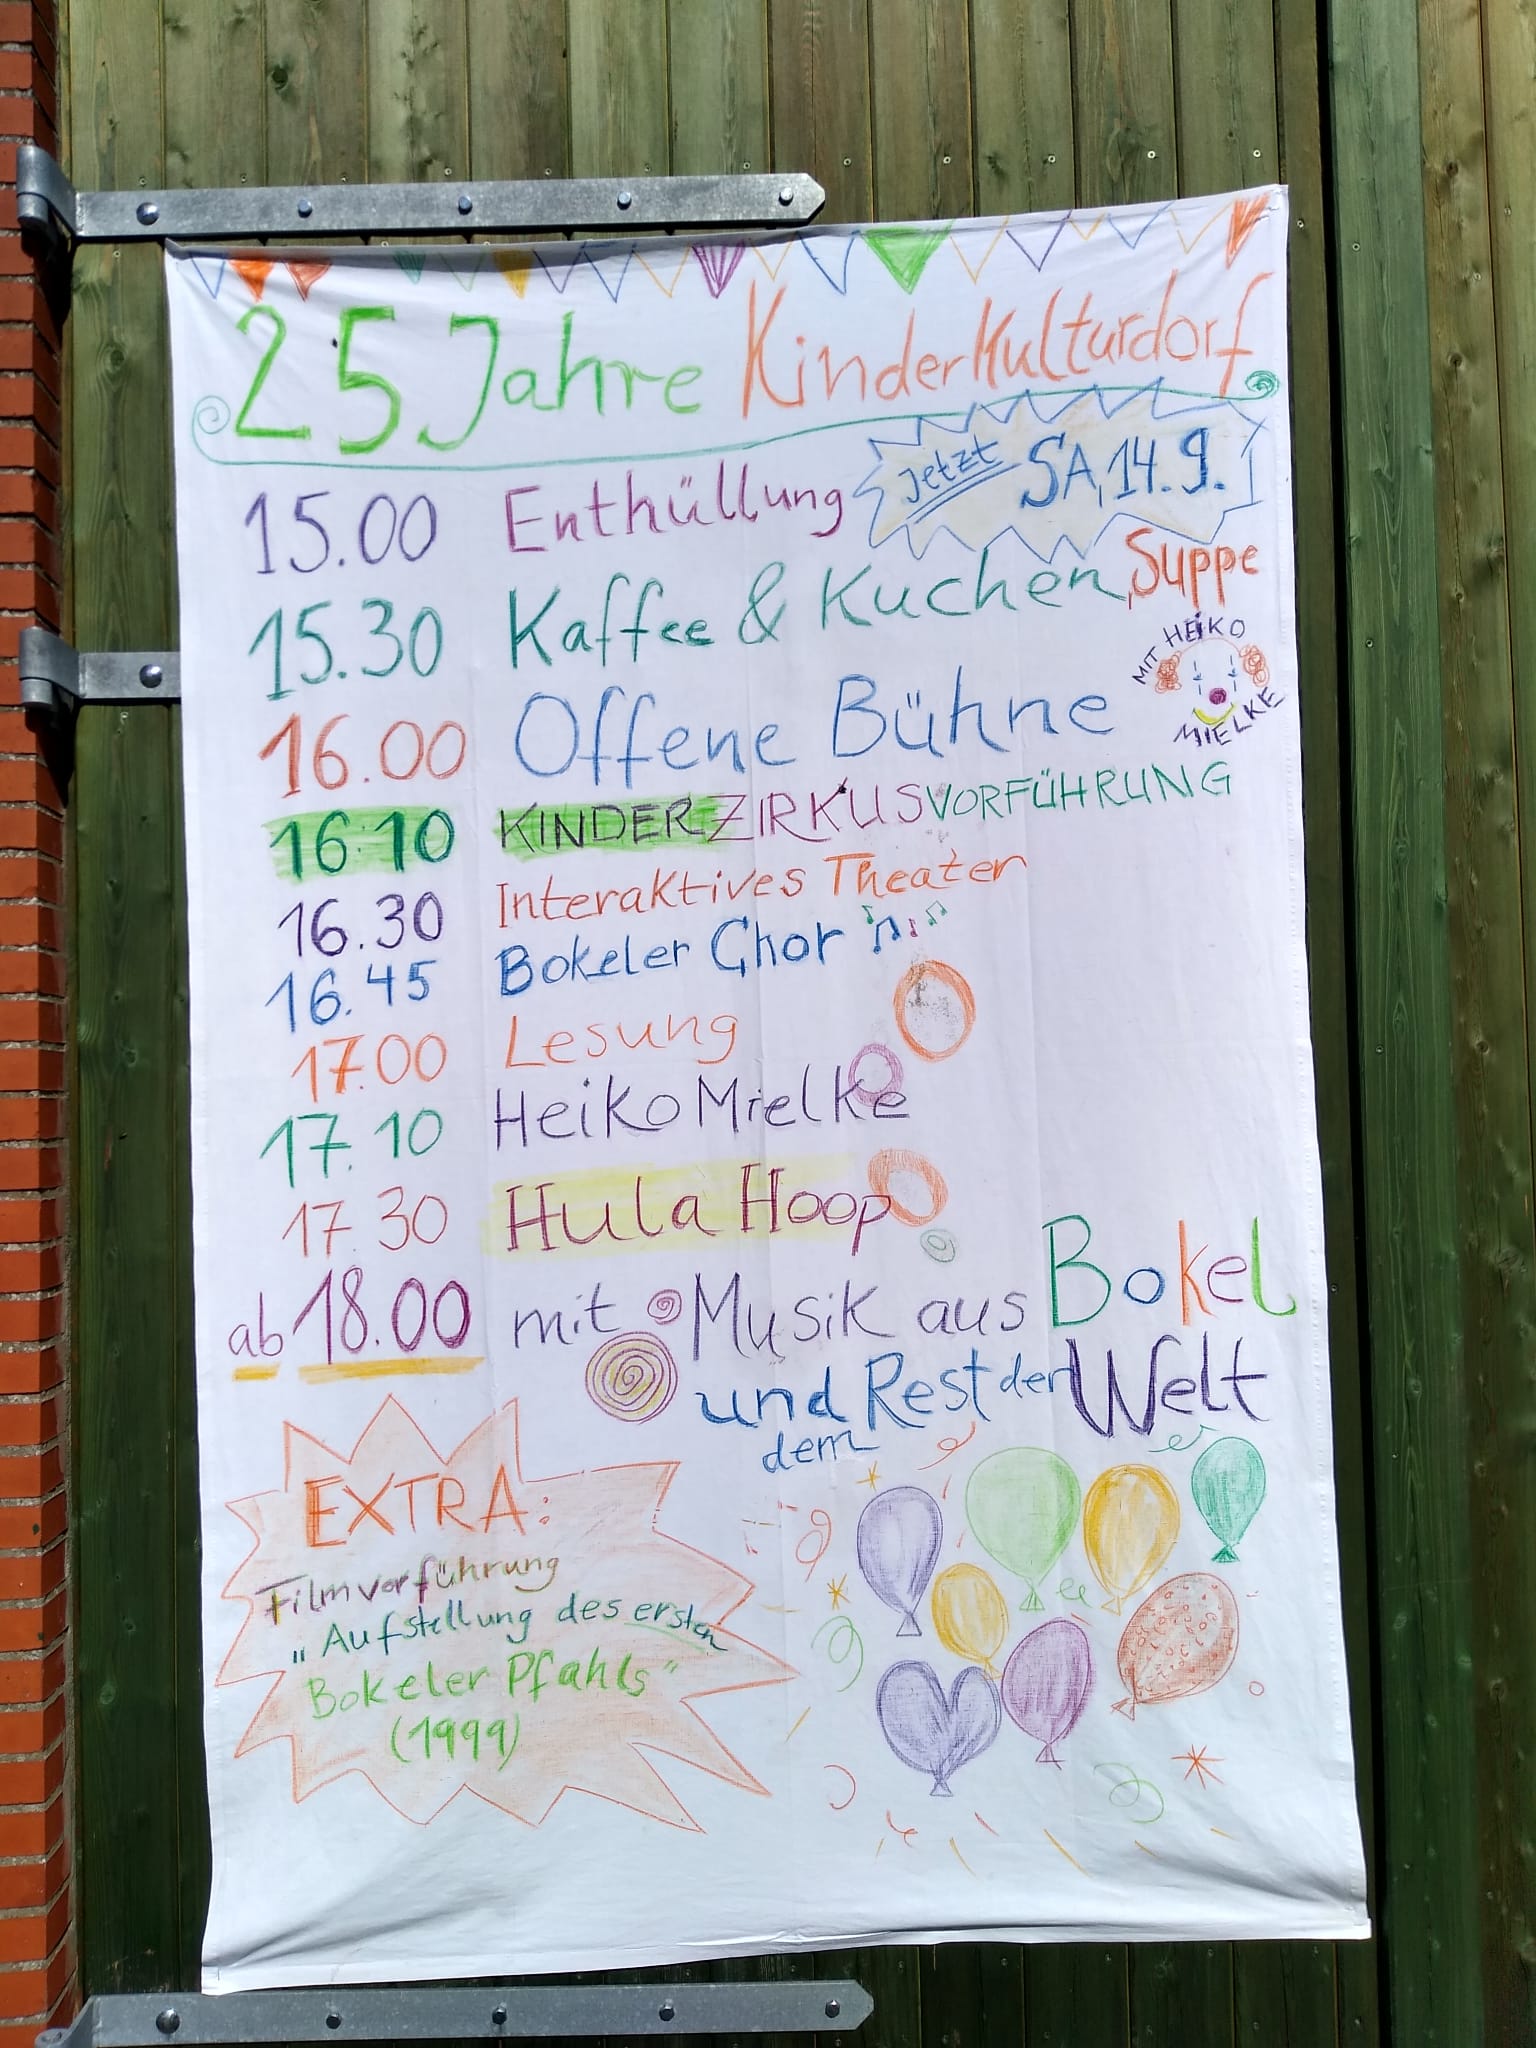 25 Jahre Kinderkulturdorf
Jetzt SA, 14.9.
15.00 Enthüllung
15.30 Kaffee & Kuchen, Suppe
16.00 Offene Bühne
MIT HEIKO
MIELKE
16:10 KINDERZIRKUSVORFÜHRUNG
16.30 Interaktives Theater
16.45 Bokeler Chor
17.00 Lesung
17.10 Heiko Mielke
17.30 Hula Hoop
ab 18.00 mit Musik aus Bokel
und Rest der Welt
dem
EXTRA:
Filmvorführung
„Aufstellung des ersten
Bokeler Pfahls"
(1999)